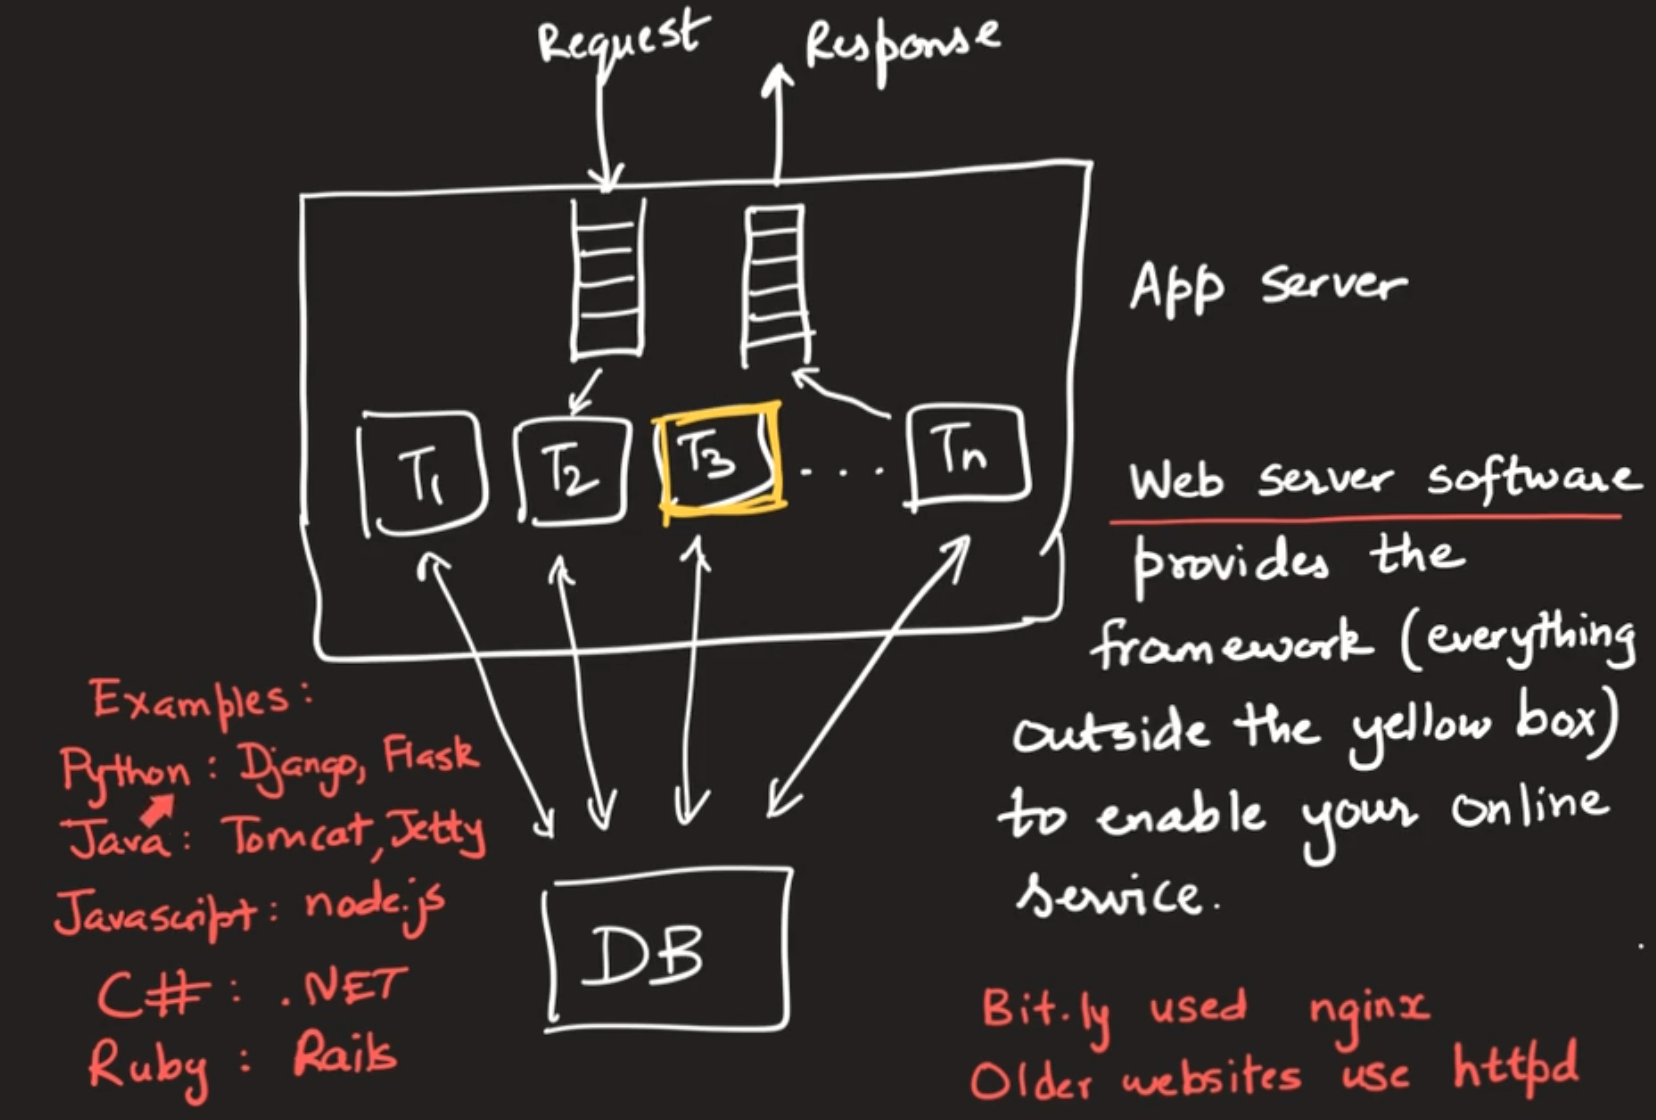 Request
Response
App server
T1
T2
T3
. . .
Tn
Web server software
provides the
framework (everything
outside the yellow box)
to enable your online
service.
Examples:
Python: Django, Flask
Java: Tomcat, Jetty
Javascript: node.js
C#: .NET
Ruby: Rails
DB
Bit.ly used nginx
Older websites use httpd